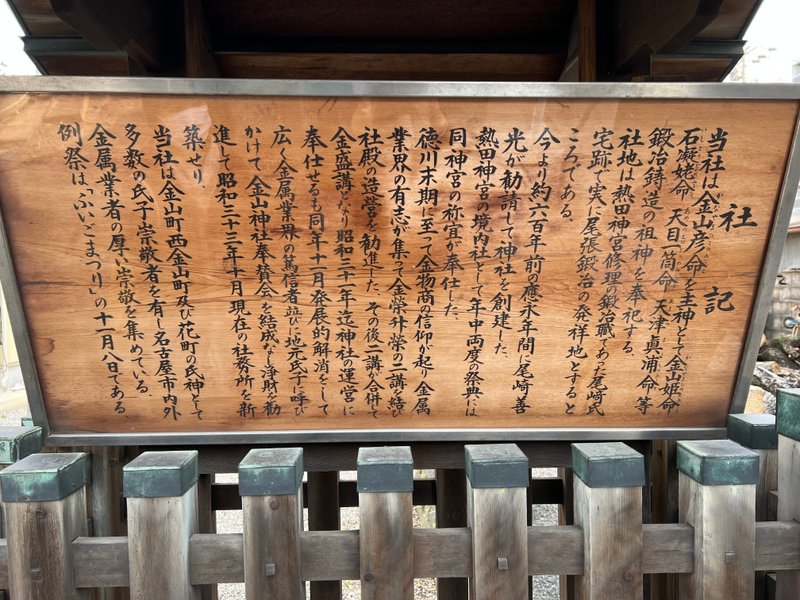 社記
当社は金山彦命を主神として金山姫命
石凝姥命 天目一箇命 天津真浦命 等
鍛冶鋳造の祖神を奉祀する、
社地は熱田神宮修理鍛冶職であった尾崎氏
宅跡で実に尾張鍛冶の発祥地とすると
ころである。
今より約六百年前の應永年間に尾崎善
光が勧請して神社を創建した、
熱田神宮の境内社として年中両度の祭典には
同神宮の祢宜が奉仕した、
徳川末期に至って金物商の信仰が起り金属
業界の有志が集って金榮舛榮の二講を結び
社殿の造営を勧進した、その後二講が合併して
金盛講となり昭和三十一年迄神社の運営に
奉仕せるも同年十二月発展的解消をして
広く金属業界の篤信者並びに地元氏子に呼び
かけて金山神社奉賛会を結成なし浄財を勧
進して昭和三十三年十月現在の社務所を新
築せり、
当社は金山町西金山町及び花町の氏神として
多数の氏子崇敬者を有し名古屋市内外
金属業者の厚い崇敬を集めている、
例祭は「ふいごまつり」の十一月八日である